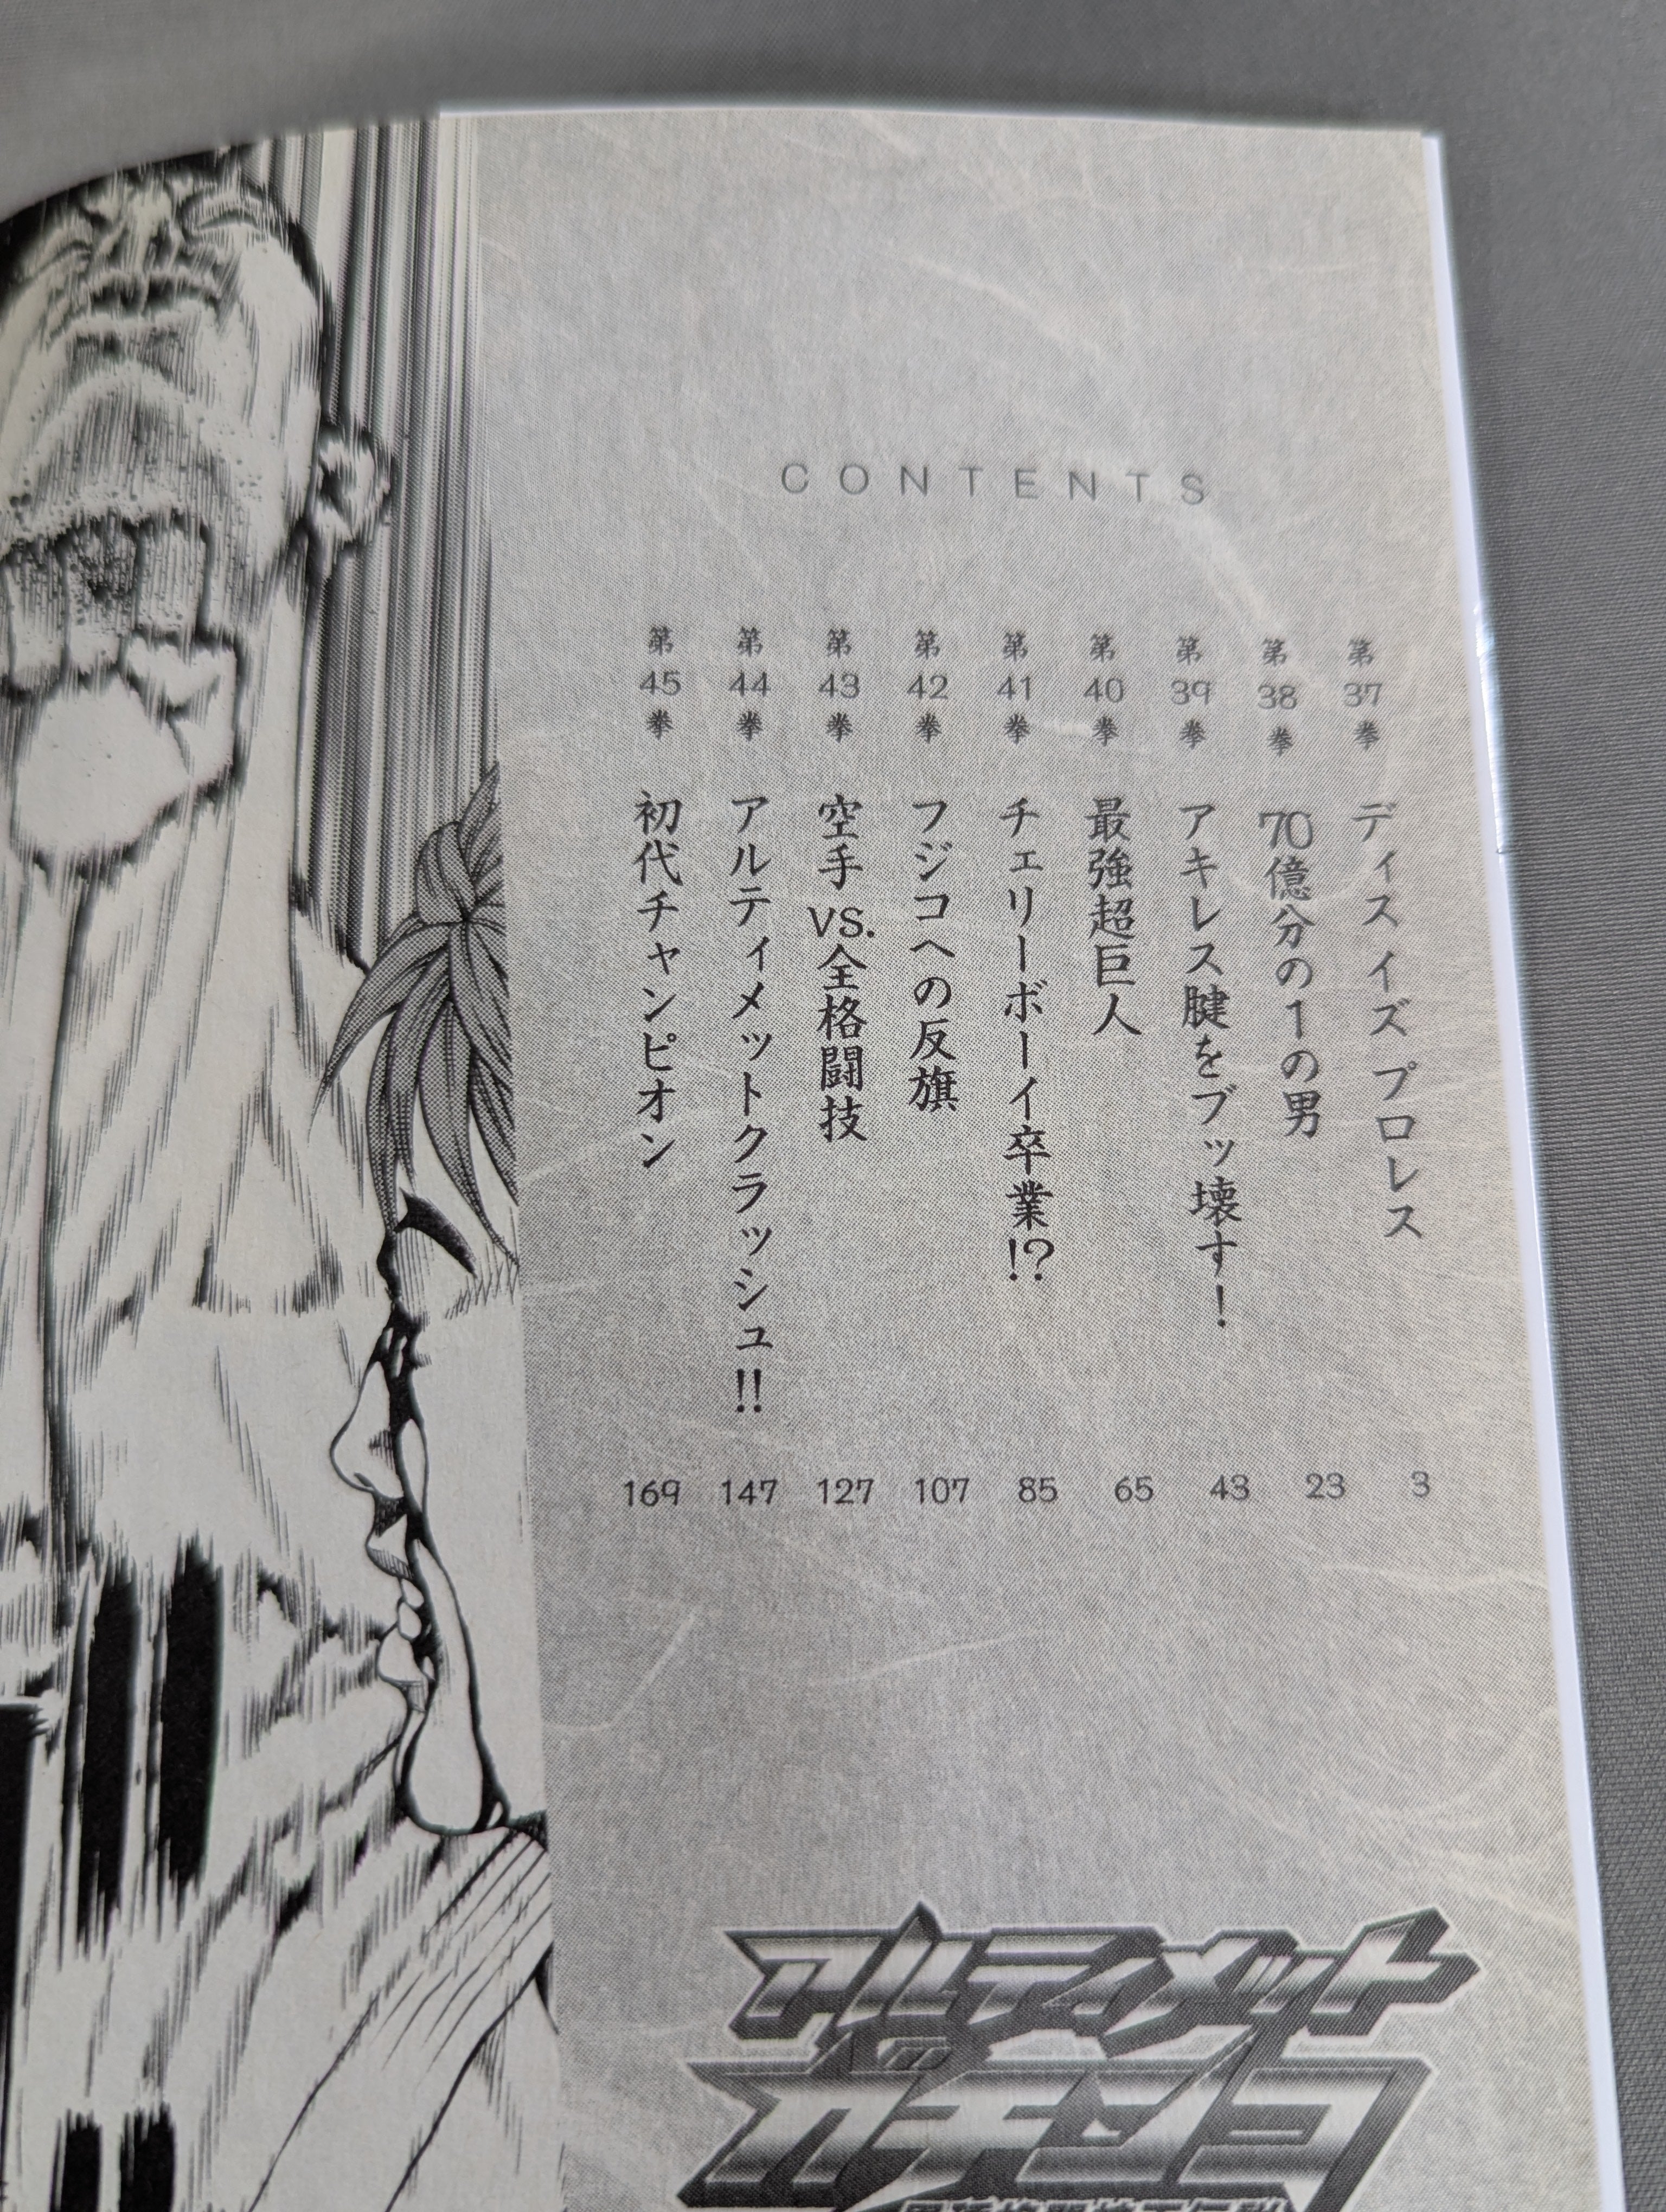 CONTENTS
第37拳 ディス イズ プロレス 3
第38拳 70億分の1の男 23
第39拳 アキレス腱をブッ壊す! 43
第40拳 最強超巨人 65
第41拳 チェリーボーイ卒業!? 85
第42拳 フジコへの反旗 107
第43拳 空手 VS.全格闘技 127
第44拳 アルティメットクラッシュ!! 147
第45拳 初代チャンピオン 169
アルティメット